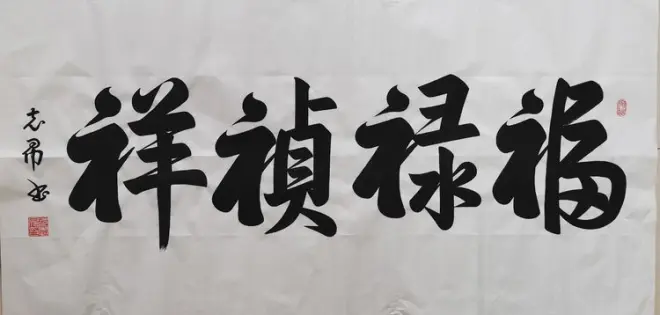 福禄禎祥
志 书